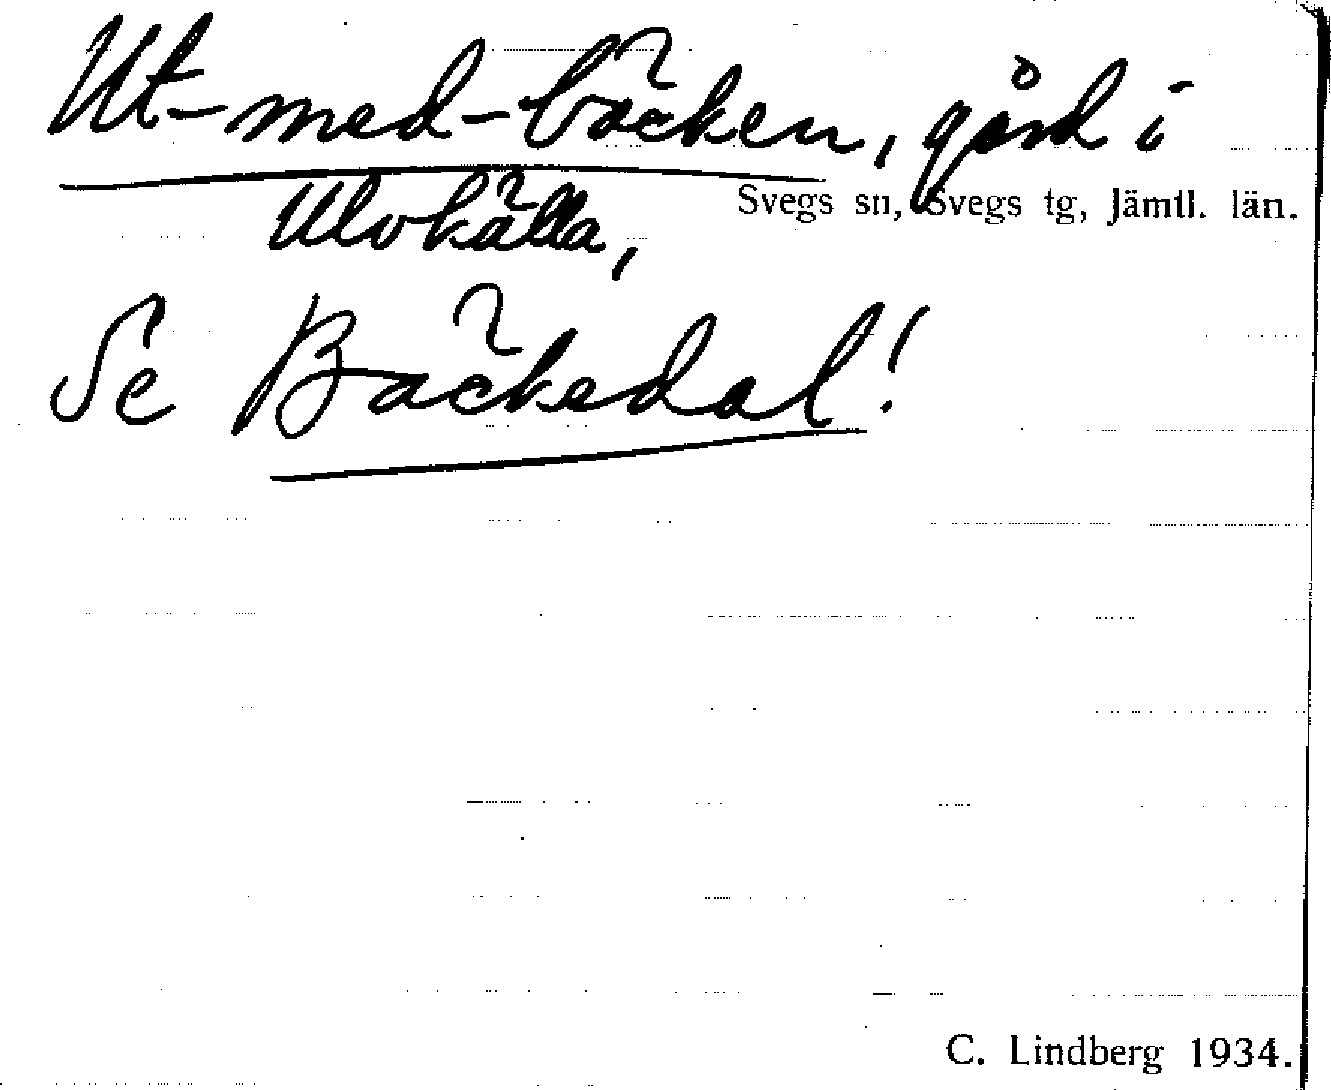 Ut-med-bäcken, gård i
Svegs sn, Svegs tg, Jämtl. län.
Ulvkälla,
Se Bäckedal!
C. Lindberg 1934.